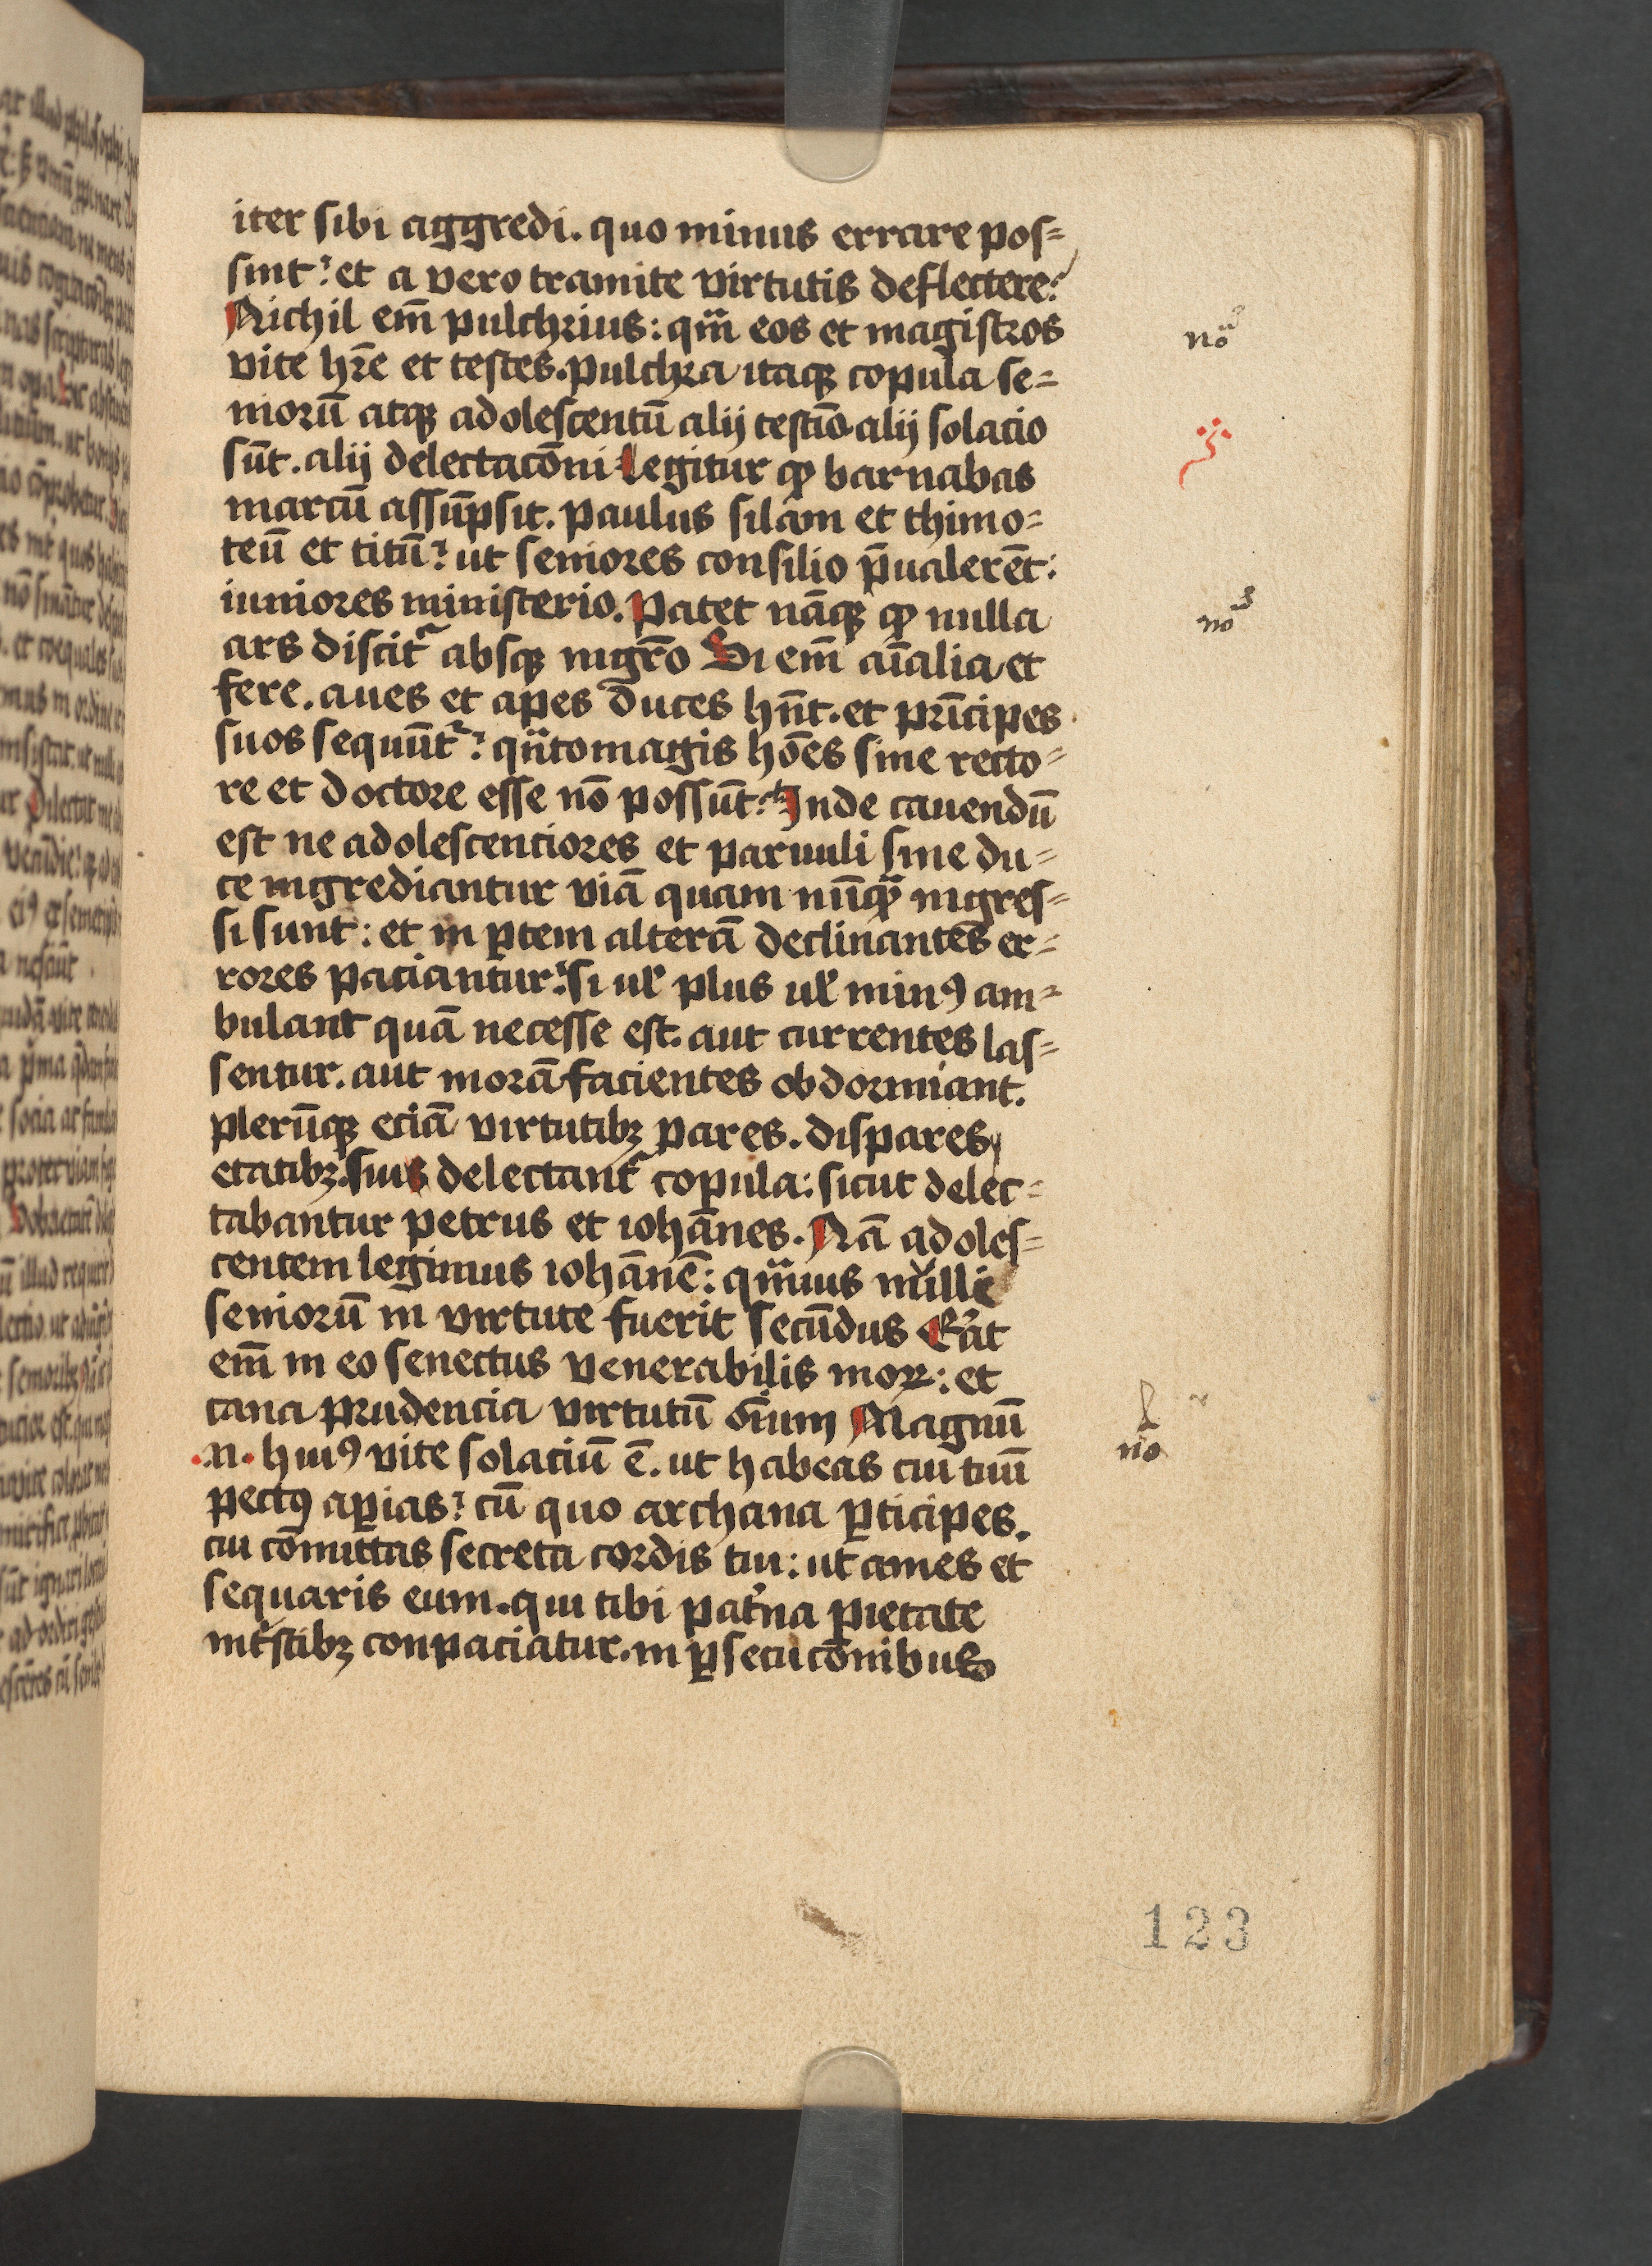 iter sibi aggredi. quo minus errare pos=
sint? et a vero tramite virtutis deflectere:
Nichil em̄ pulchrius: qm̄ eos et magistros
vite hr̄e et testes. pulchra itaqꝫ copula se=
niorū atqꝫ adolescentū alij testīo alij solacio
sūt. alij delectacōni legitur ꝙ barnabas
marcū assūpsit. paulus silam et thimo=
teū et titū? ut seniores consilio p̄ualerēt:
iuniores ministerio. Patet nāqꝫ ꝙ nulla
ars discitᷣ absqꝫ mgr̄o Si em̄ aīalia et
fere. aues et apes duces hn̄t. et prīcipes
suos sequūtᷣ? qn̄tomagis hoēs sine recto=
re et doctore esse nō possūt: Inde cauendū
est ne adolescentiores et paruuli sine du=
ce ingrediantur viā quam nūqꝫ ingres=
si sunt: et in ꝑtem alterā declinantes er=
rores paciantur: si ul̄ plus ul̄ minꝰ am=
bulant quā necesse est. aut currentes las=
sentur. aut morā facientes obdormiant.
plerūqꝫ eciā virtutibꝫ pares. dispares
etatibꝫ. suis delectantᷣ copula: sicut delec=
tabantur petrus et iohānes. Nā adoles=
centem legimus iohānē: qm̄uis nulli
seniorū in virtute fuerit secūdus Erat
em̄ in eo senectus venerabilis moꝝ: et
cana prudencia virtutū oīum Magnū
.n. huiꝰ vite solaciū ē. ut habeas cui tuū
pectꝰ aꝑias? cū quo archana ꝑticipes.
cui cōmittas secreta cordis tui: ut ames et
sequaris eum. qui tibi pat̄na pietate
int̄stibꝫ conpaciatur. in ꝑsecucōnibus
nō
nō
nō
123